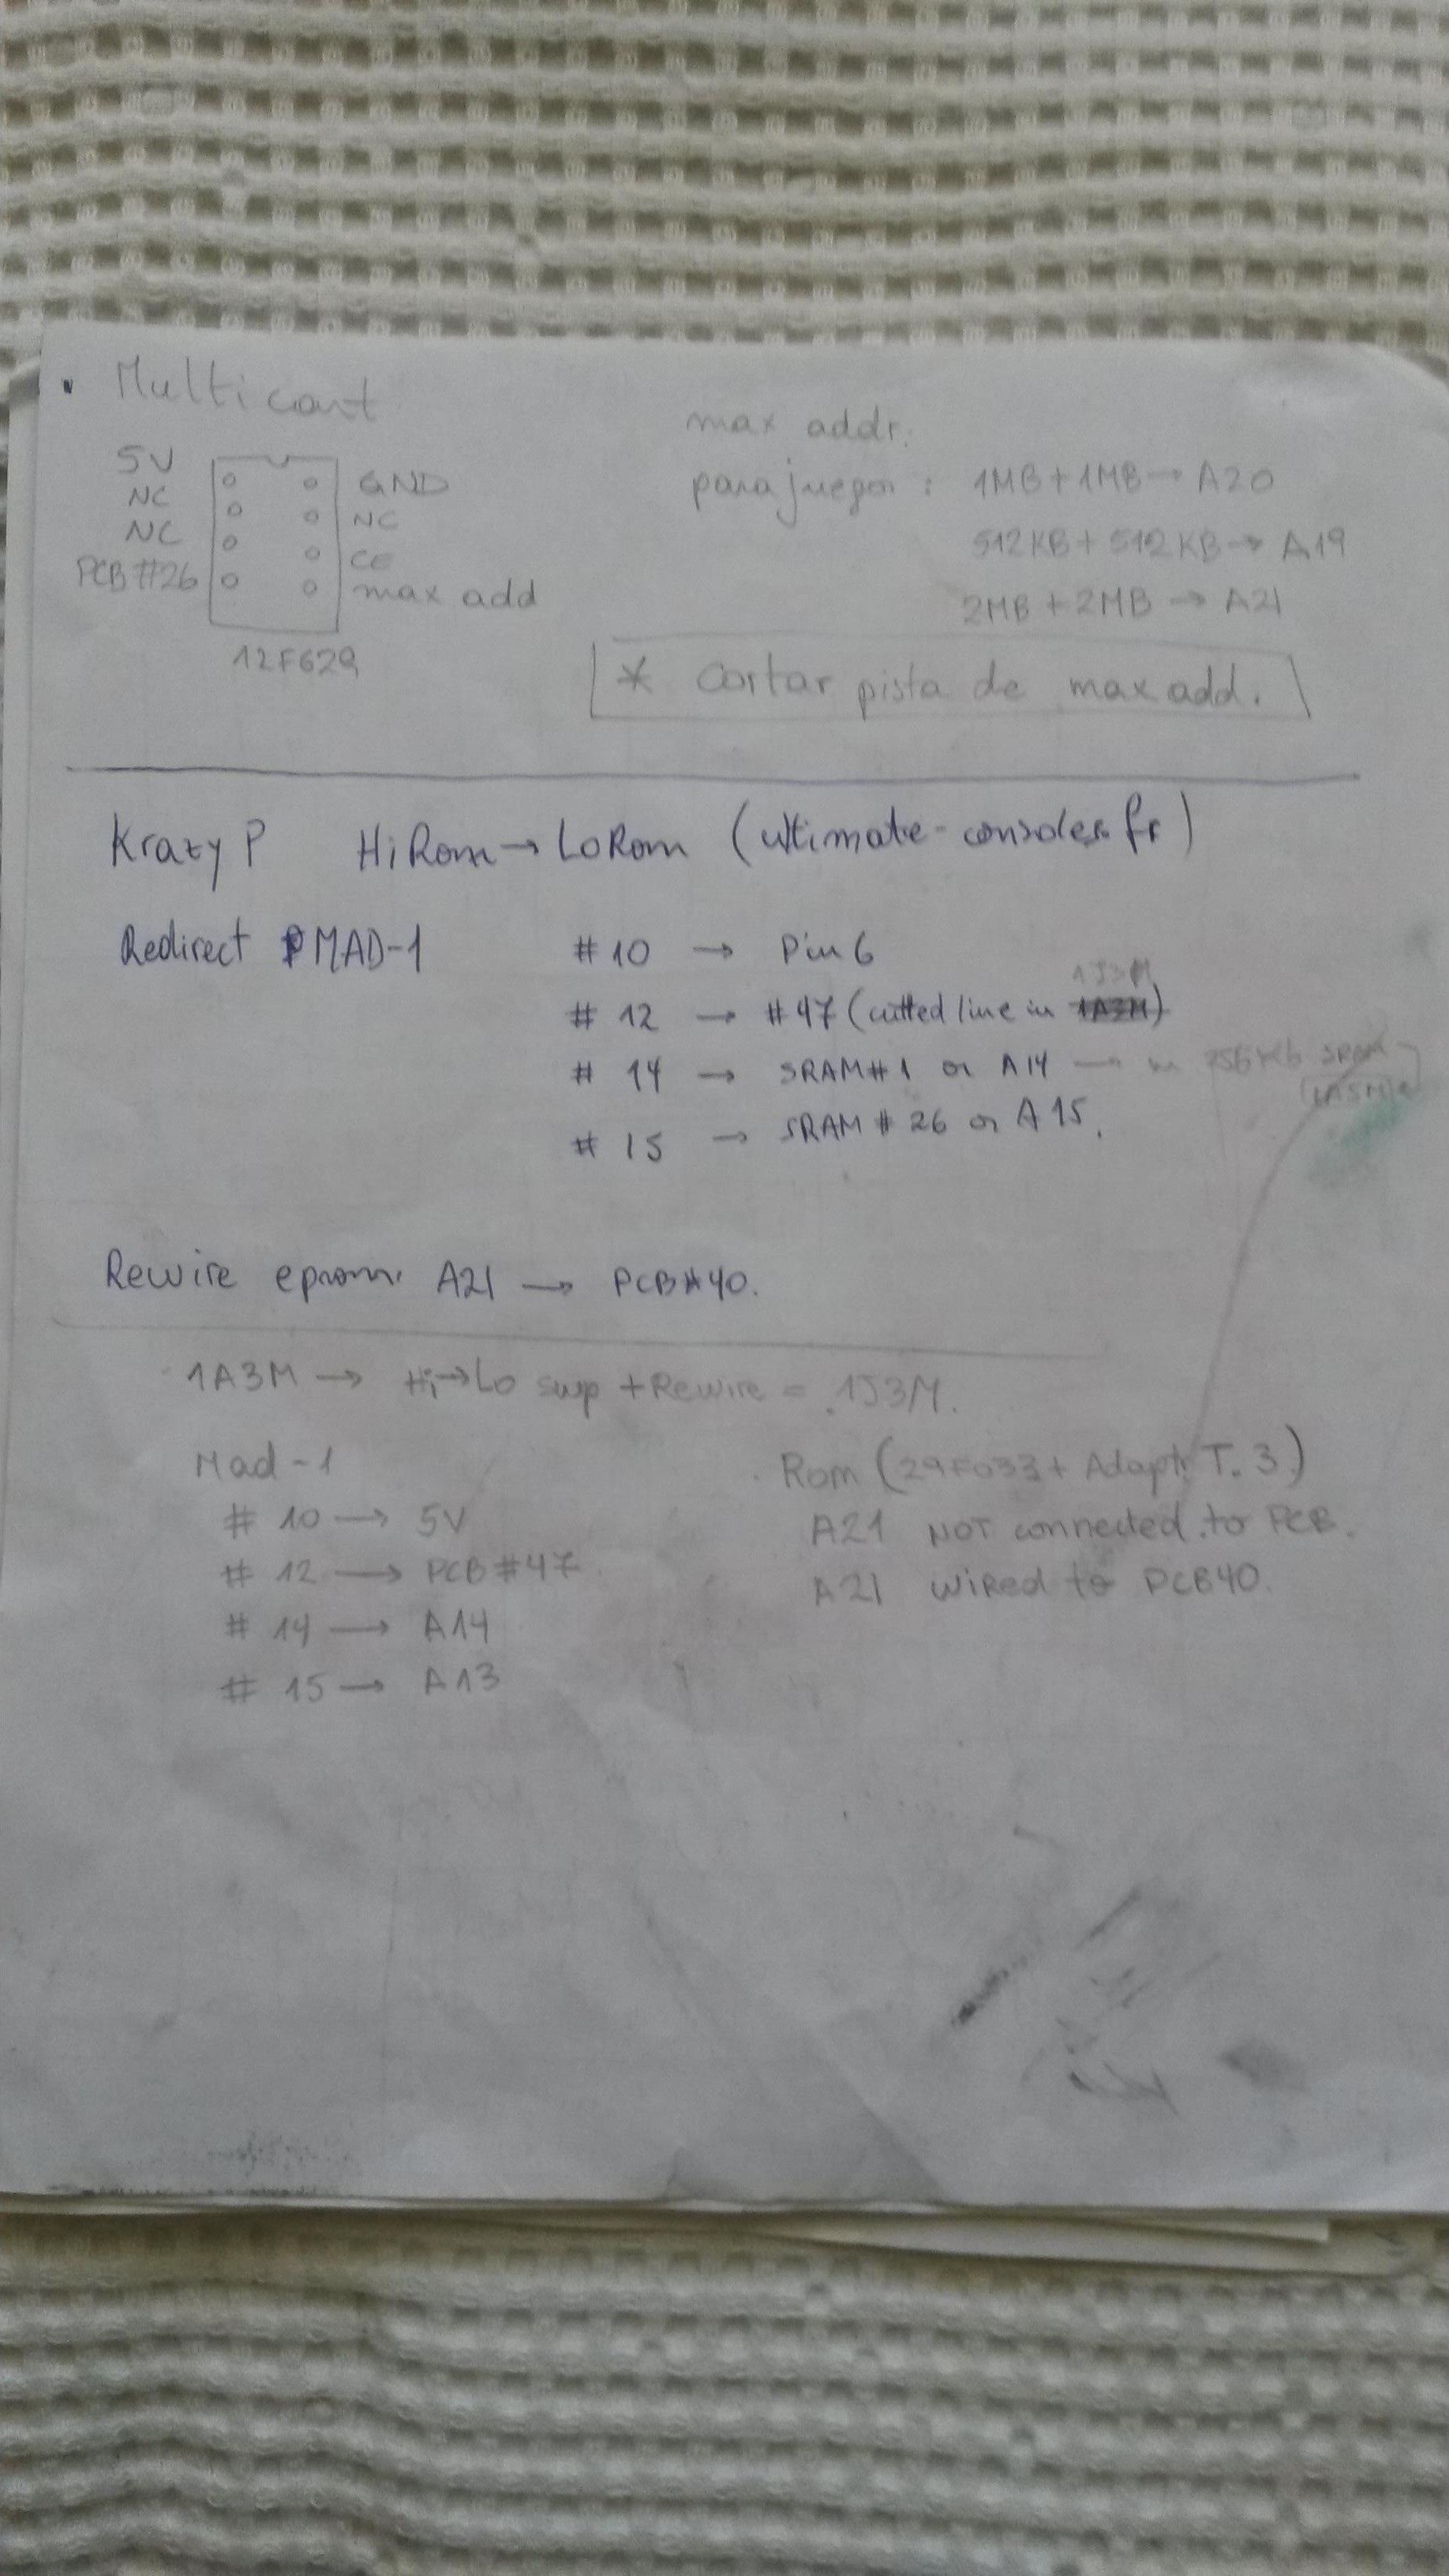 · Multicart
5V GND
NC NC
NC CE
PCB #26 max add
12F629
max addr.
para juegos : 1MB + 1MB → A20
512KB + 512KB → A19
2MB + 2MB → A21
* Cortar pista de max add.
Krazy P HiRom → LoRom (ultimate-consoles.fr)
Redirect MAD-1 # 10 → Pin 6
1J3M
# 12 → #47 (cutted line in 1A3M)
# 14 → SRAM#1 or A14 → in 256Kb SRAM
# 15 → SRAM # 26 or A15.
Rewire eprom: A21 → PCB#40.
1A3M → Hi→Lo swp + Rewire = 1J3M.
Mad-1
# 10 → 5V
# 12 → PCB #47
# 14 → A14
# 15 → A13
Rom (29F033 + Adapt. T. 3)
A21 NOT connected to PCB.
A21 wired to PCB40.